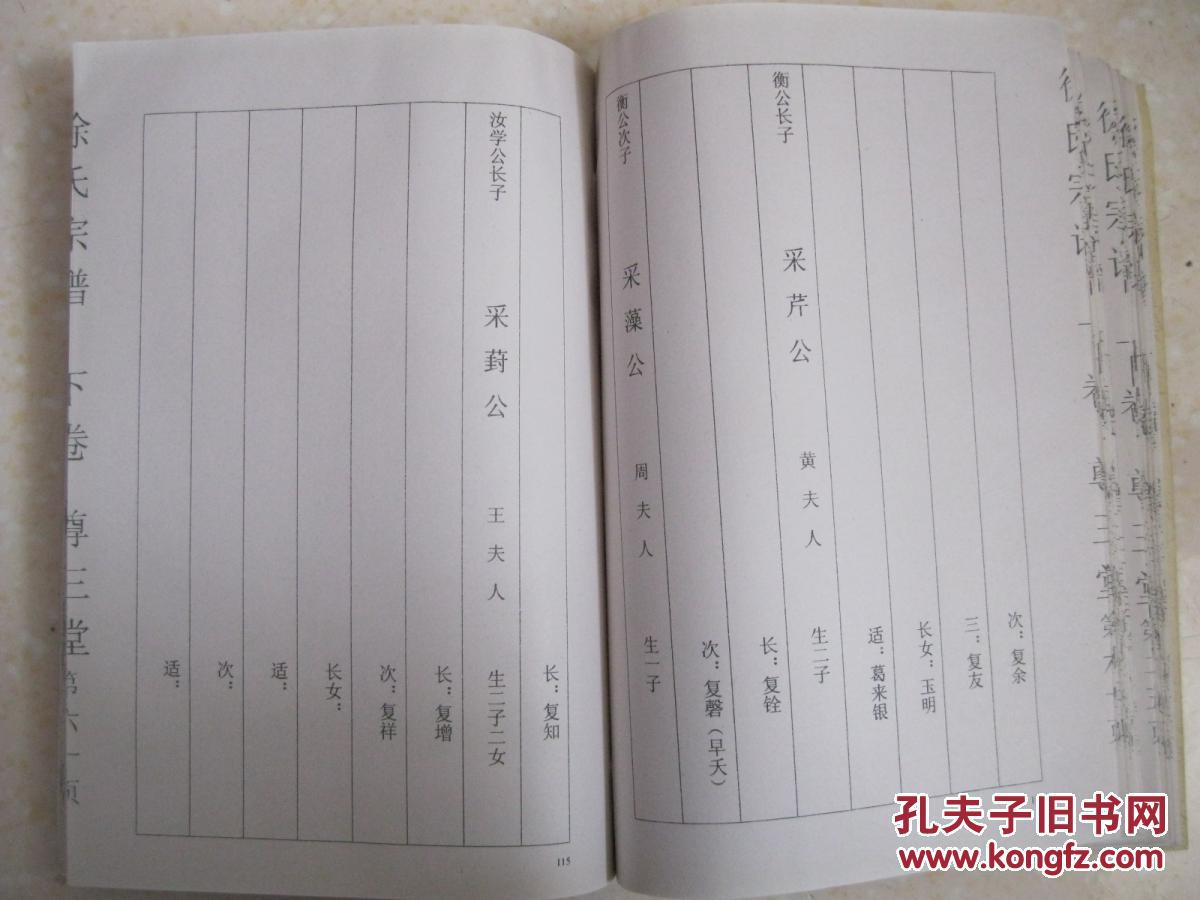 次：复余
三：复友
长女：玉明
适：葛来银
衡公长子 采芹公 黄夫人 生二子
长：复铨
次：复磬（早夭）
衡公次子 采藻公 周夫人 生一子
长：复知
汝学公长子 采葑公 王夫人 生二子二女
长：复增
次：复祥
长女：
适：
次：
适：
徐氏宗谱 下卷 尊三堂 第六一页
115
孔夫子旧书网
www.kongfz.com